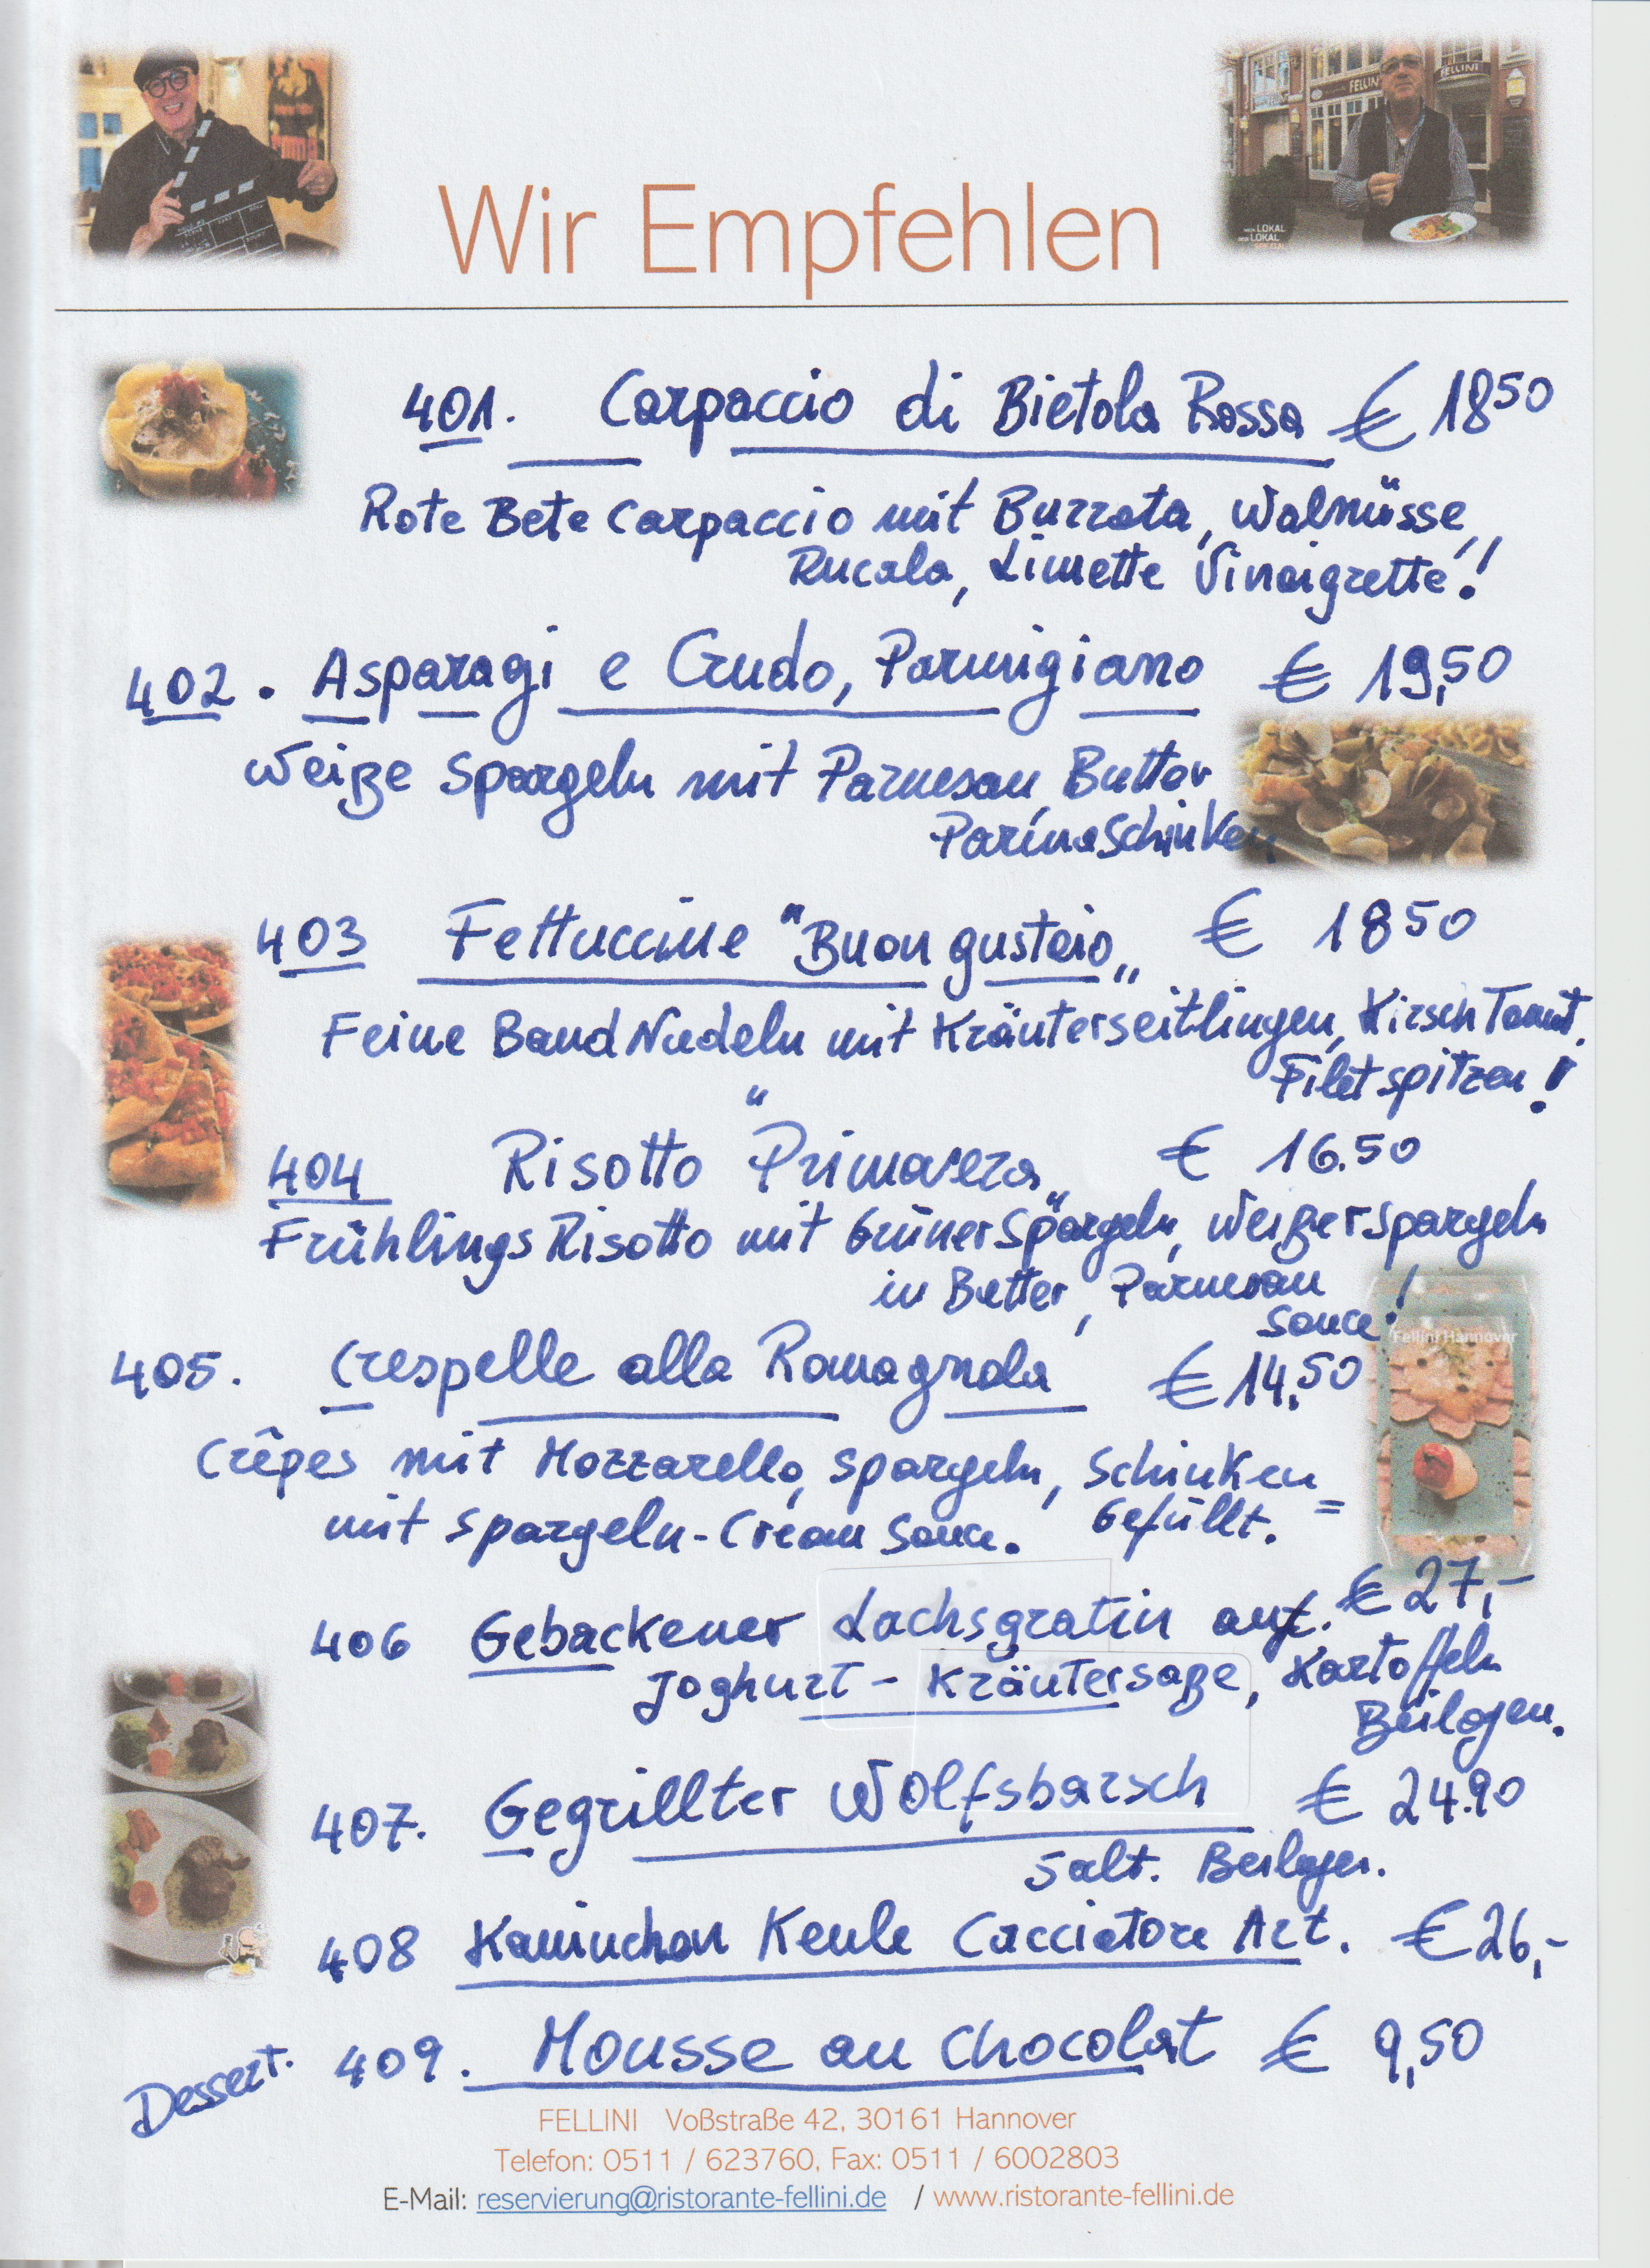 FELLINI
FELLINI
MEIN LOKAL
DEIN LOKAL
Wir Empfehlen
401. Carpaccio di Bietola Rossa € 18 50
Rote Bete Carpaccio mit Burrata, Walnüsse,
Rucola, Limette Vinaigrette!
402. Asparagi e Crudo, Parmigiano € 19,50
Weiße Spargeln mit Parmesan, Butter
ParmaSchinken
403 Fettuccine "Buon gustaio" € 18 50
Feine Band Nudeln mit Kräuterseitlingen, Kirsch Tomat.
Filetspitzen!
404 Risotto "Primavera" € 16.50
Frühlings Risotto mit Grüner Spargeln, Weißer Spargeln
in Butter, Parmesan
Sauce!
Fellini Hannover
405. Crespelle alla Romagnola € 14,50
Crêpes mit Mozzarella, Spargeln, Schinken =
mit Spargeln-Cream Sauce. Gefüllt.
406 Gebackener Lachsgratin auf. € 27,-
Joghurt - Kräutersoße, Kartoffeln
Beilagen.
407. Gegrillter Wolfsbarsch € 24.90
Salt. Beilagen.
408 Kaninchen Keule Cacciatore Art. € 26,-
Dessert. 409. Mousse au Chocolat € 9,50
FELLINI Voßstraße 42, 30161 Hannover
Telefon: 0511 / 623760, Fax: 0511 / 6002803
E-Mail: reservierung@ristorante-fellini.de / www.ristorante-fellini.de